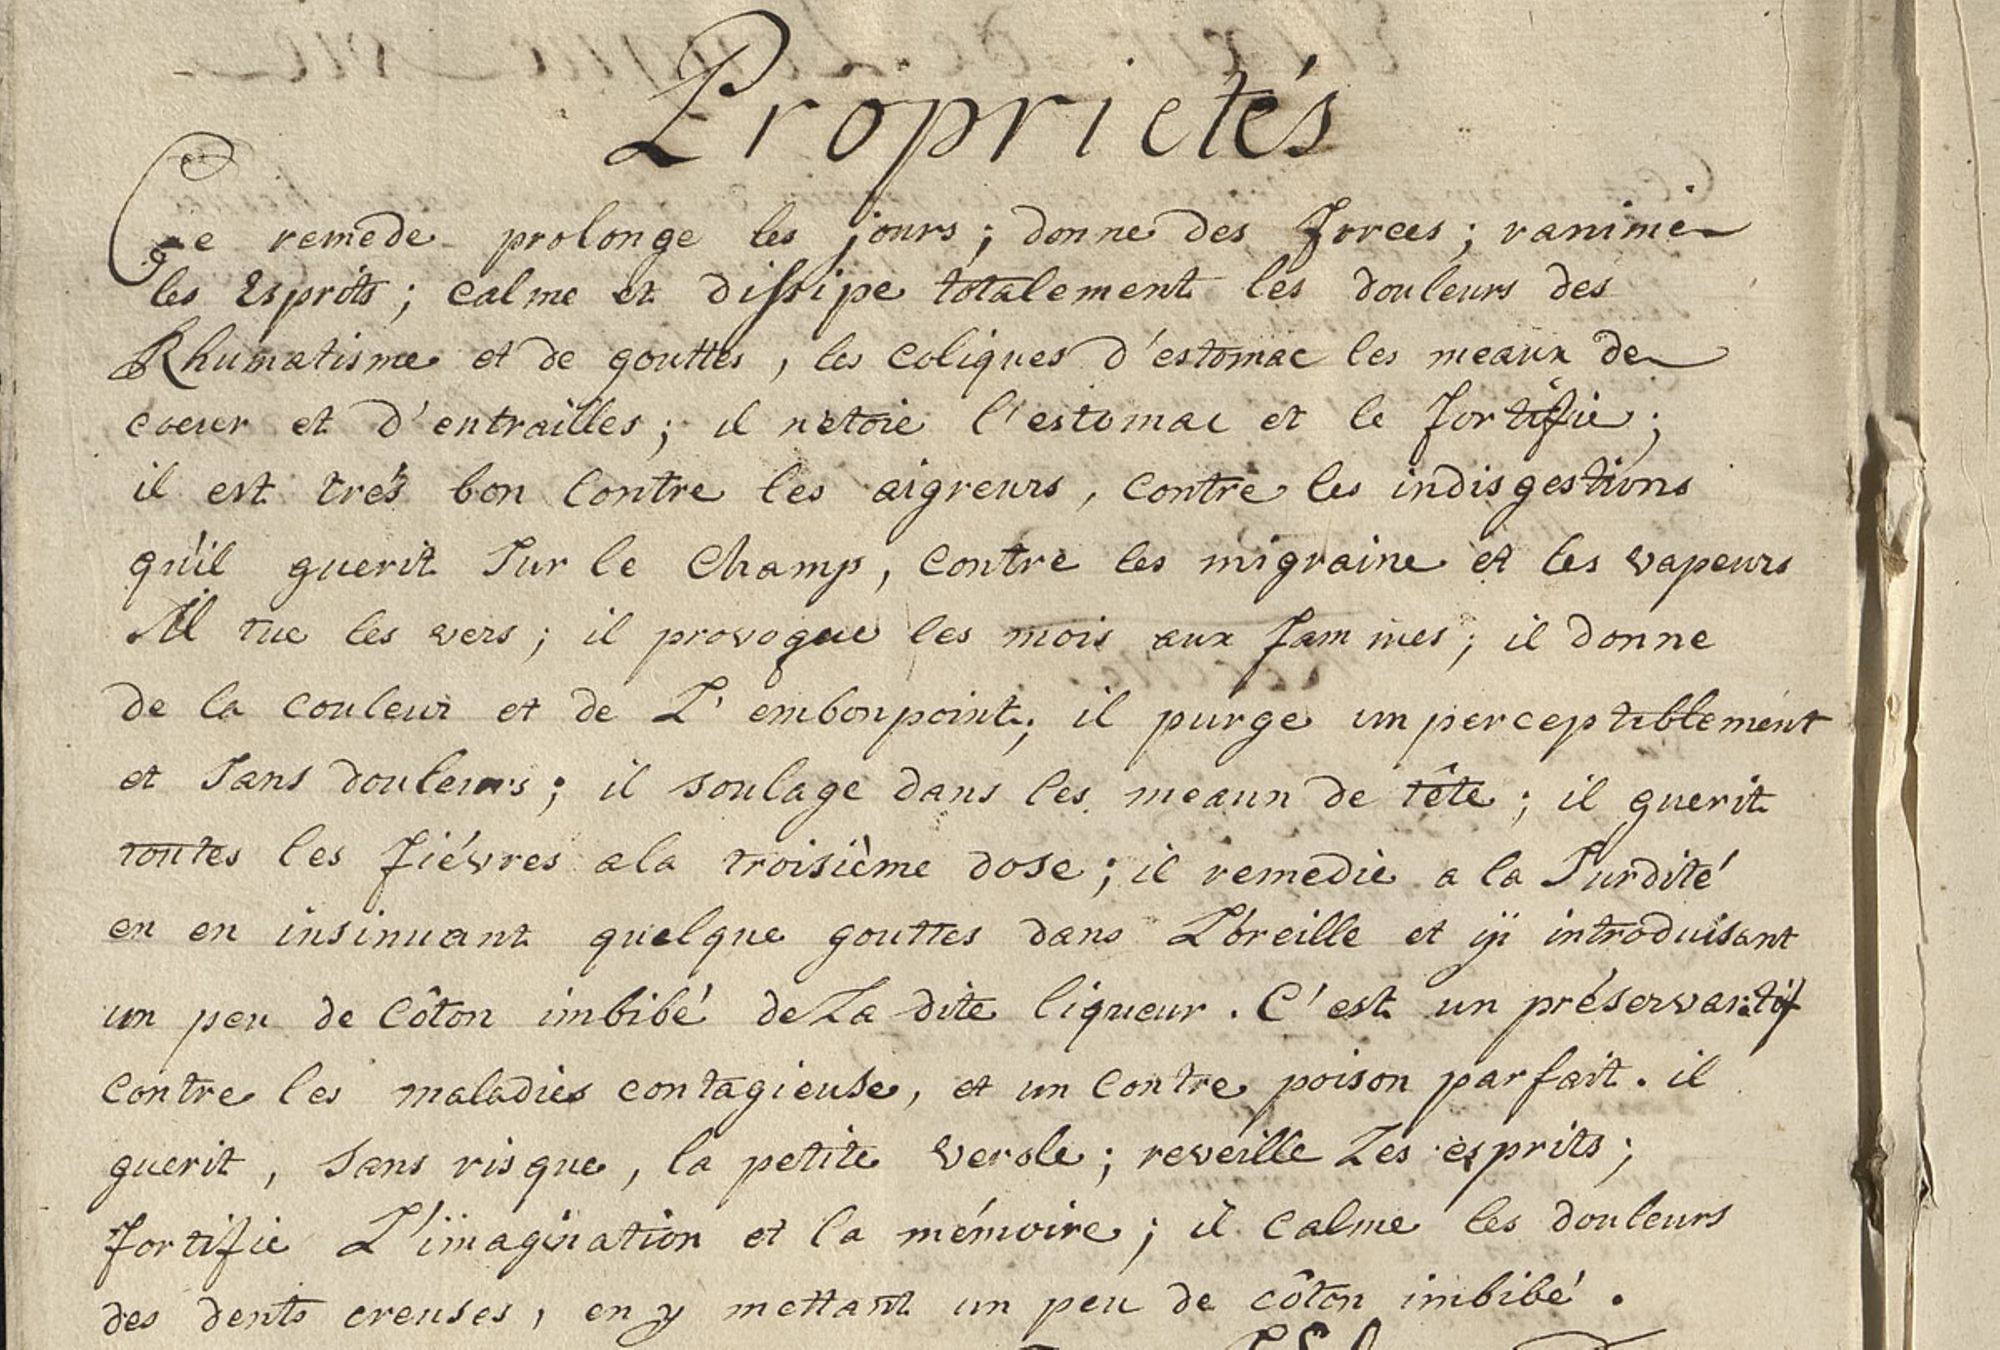 Proprietés
Ce remede prolonge les jours ; donne des forces ; ranime
les Esprits ; calme et dissipe totalement les douleurs des
Rhumatisme et de gouttes , les coliques d'estomac les meaux de
coeur et d'entrailles ; il netoie l'estomac et le fortifie ;
il est trés bon contre les aigreurs , contre les indisgestions
qu'il guerit sur le champ , contre les migraine et les vapeurs
Il tue les vers ; il provoque les mois aux fammes ; il donne
de la couleur et de L'embonpoint ; il purge imperceptiblement
et sans douleurs ; il soulage dans les meaux de tête ; il guerit
toutes les fiévres a la troisième dose ; il remedie a la surdité
en en insinuant quelque gouttes dans L'oreille et ÿ introduisant
un peu de côton imbibé de La dite liqueur . C'est un préservatif
contre les maladies contagieuse , et un contre poison parfait . il
guerit , sans risque , la petite verole ; reveille Les esprits ;
fortifie L'imagination et la mémoire ; il calme les douleurs
des dents creuses , en y mettant un peu de côton imbibé .